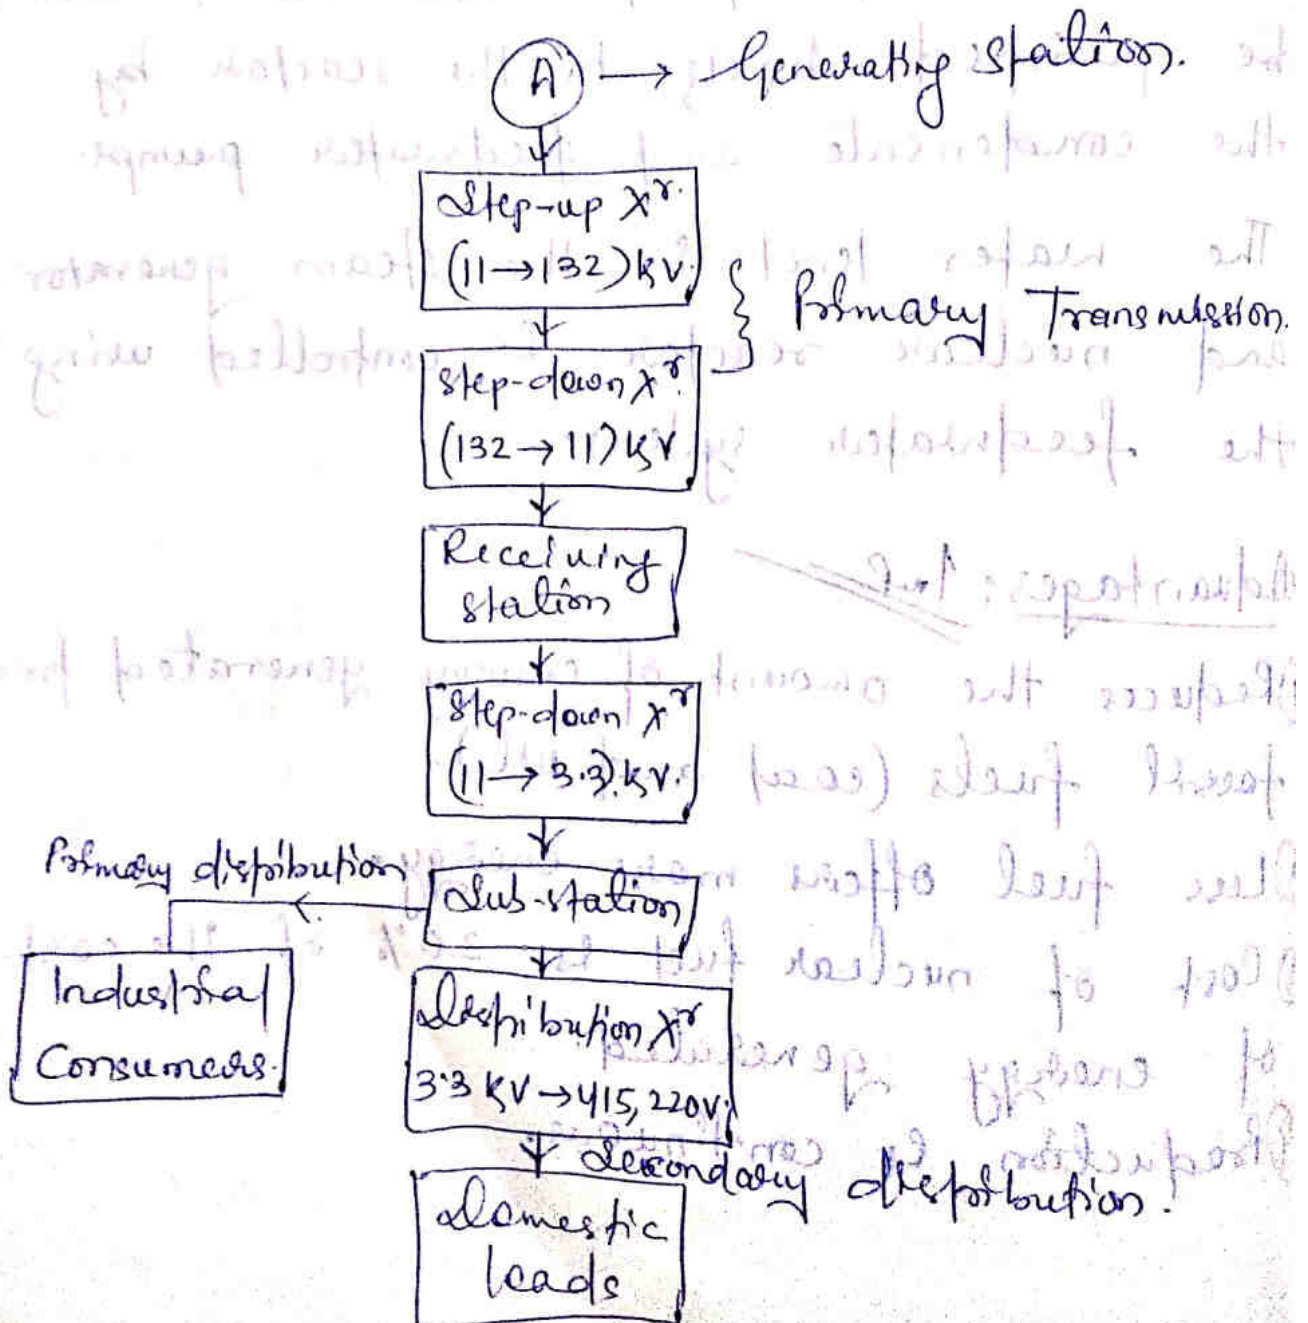 A → Generating station.
Step-up Xʳ.
(11 → 132) kV.
} Primary Transmission.
Step-down Xʳ.
(132 → 11) kV
Receiving
station
Step-down Xʳ
(11 → 3.3) kV.
Primary distribution
Sub-station
Industrial
Consumers.
Distribution Xʳ
3.3 kV → 415, 220V.
Secondary distribution.
Domestic
loads